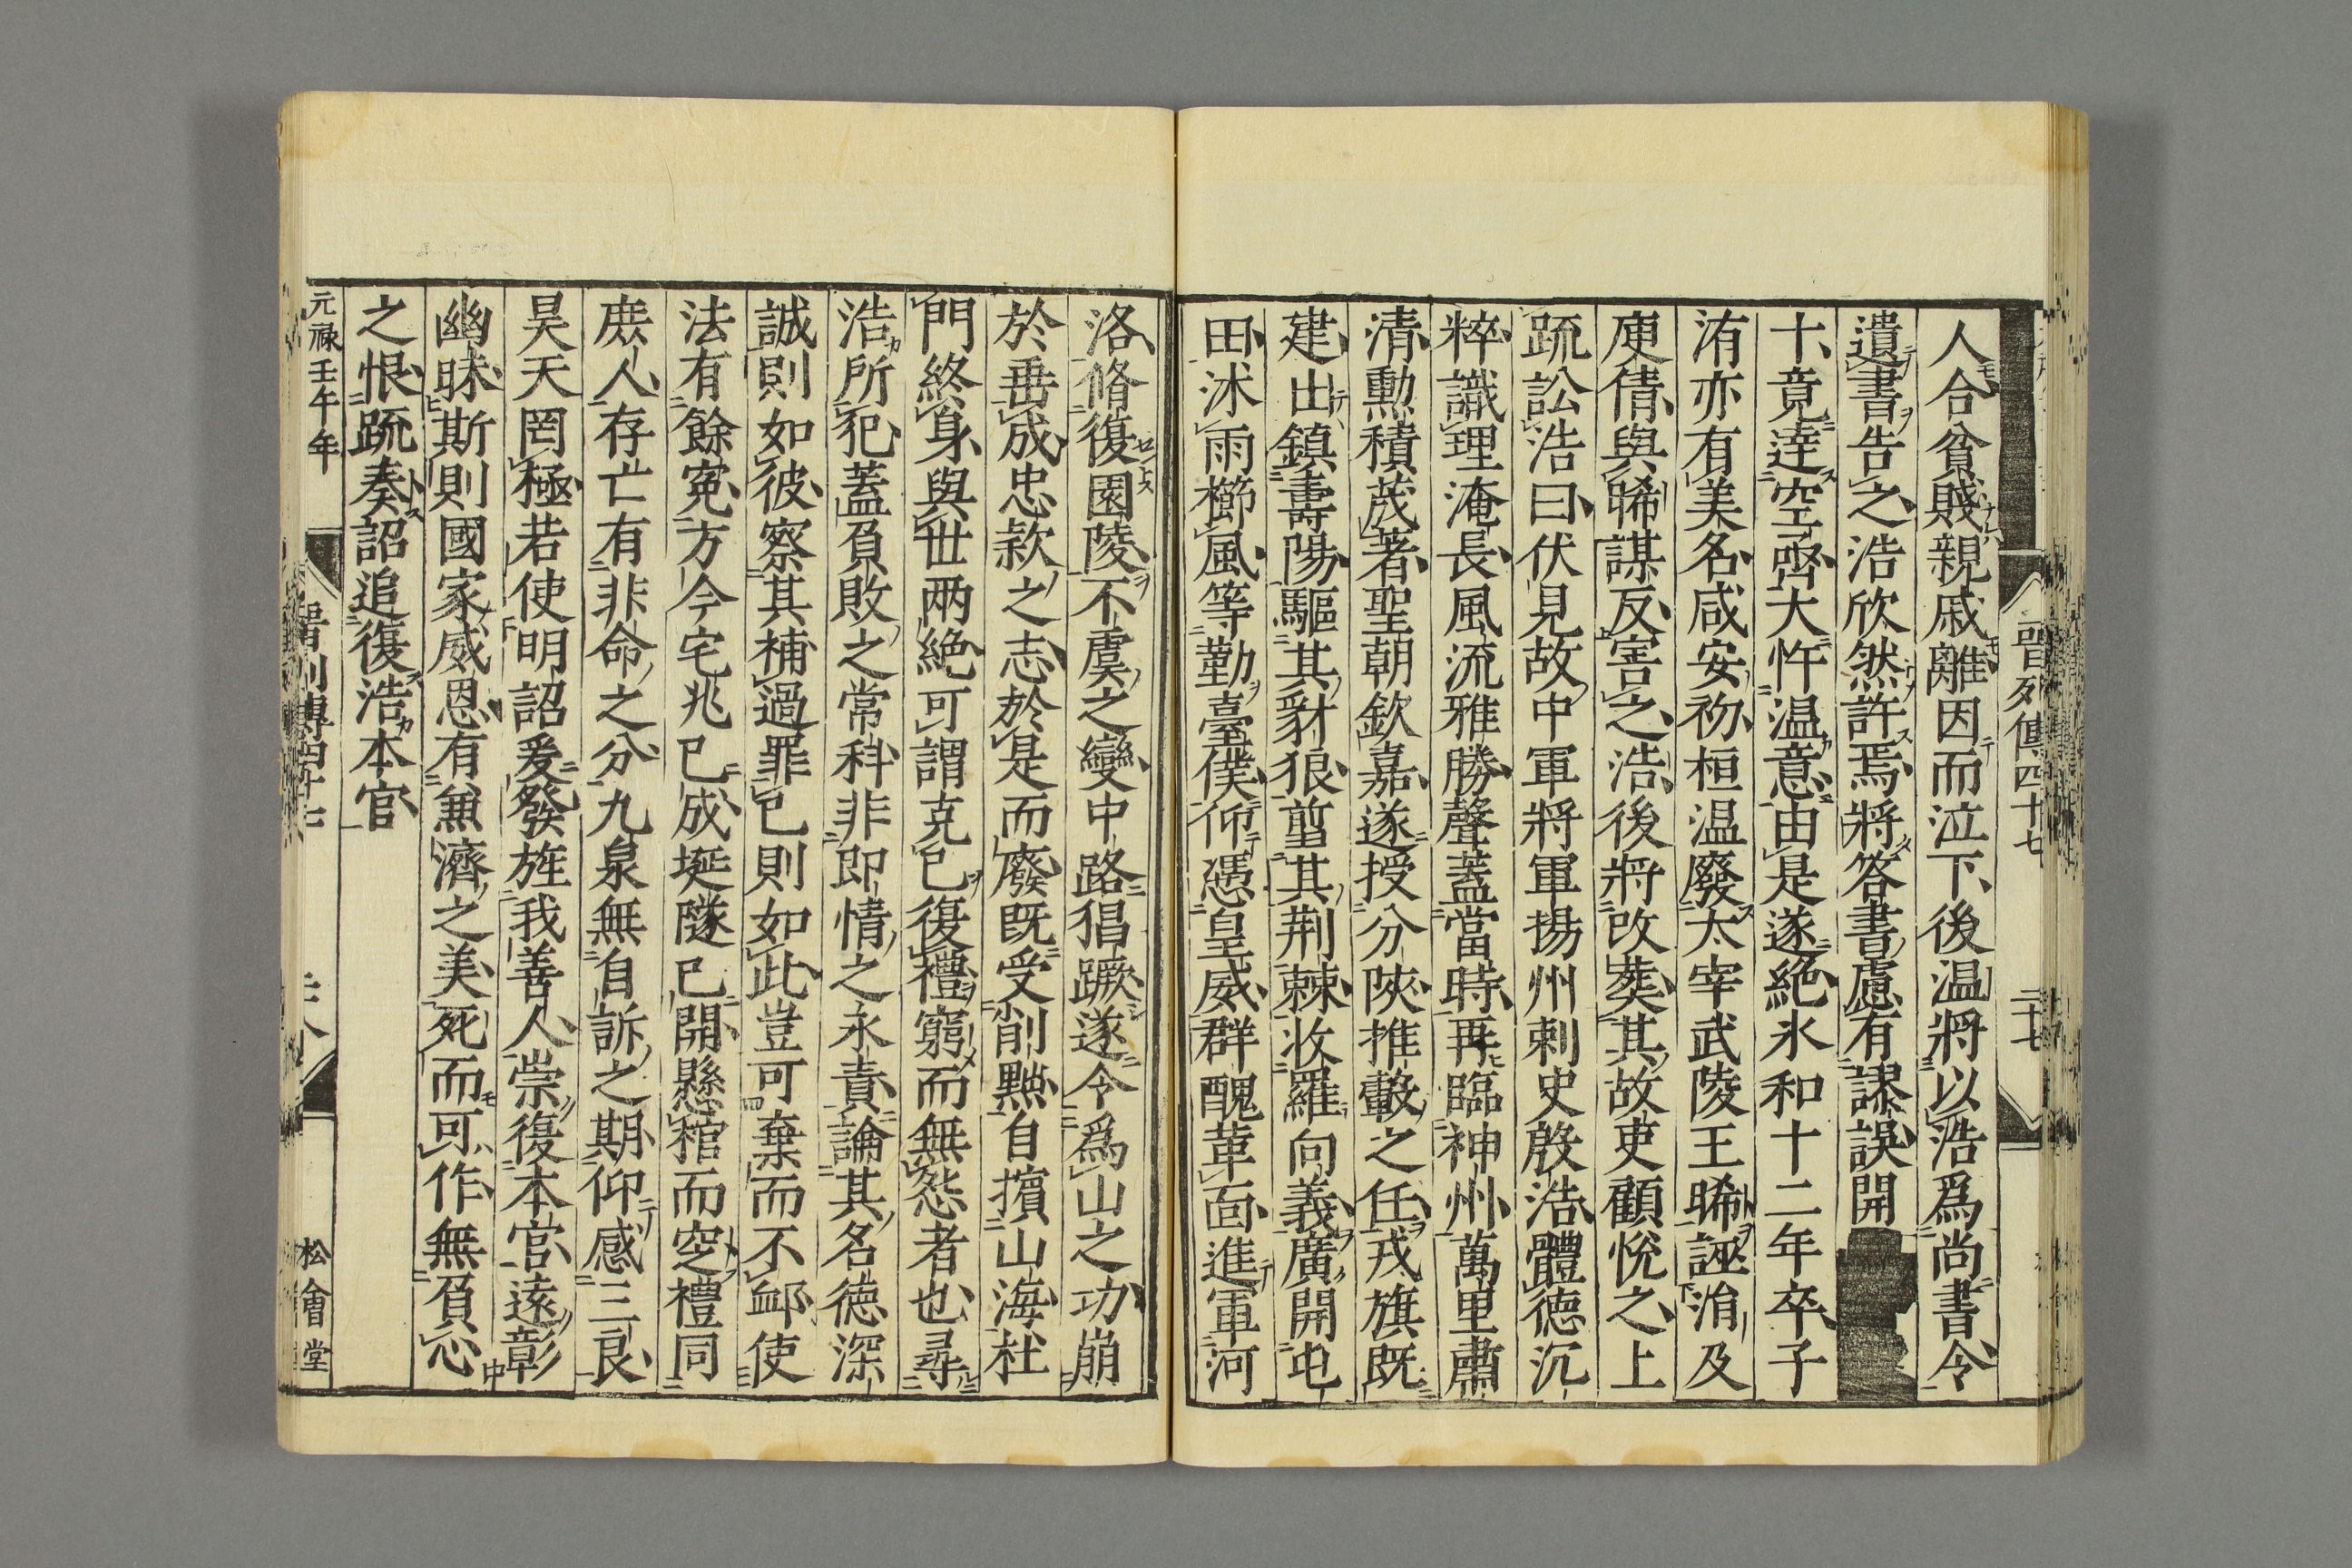 晉列傳四十七
二十七
人合貧賤親戚離因而泣下後温將以浩爲尚書令
遺書告之浩欣然許焉將答書慮有謬誤開
十竟達空啓大忤温意由是遂絶永和十二年卒子
洧亦有美名咸安初桓温廢太宰武陵王晞誣洧及
庾倩與晞謀反害之浩後將改葬其故吏顧悅之上
疏訟浩曰伏見故中軍將軍揚州刺史殷浩體德沉
粹識理淹長風流雅勝聲蓋當時再臨神州萬里肅
清勲積茂著聖朝欽嘉遂授分陝推轂之任戎旗既
建出鎮壽陽驅其豺狼翦其荆棘收羅向義廣開屯
田沐雨櫛風等勤臺僕仰憑皇威群醜革面進軍河
洛脩復園陵不虞之變中路猖蹶遂令爲山之功崩
於垂成忠款之志於是而廢既受削黜自擯山海杜
門終身與世兩絶可謂克己復禮窮而無怨者也尋
浩所犯蓋負敗之常科非即情之永責論其名德深
誠則如彼察其補過罪己則如此豈可棄而不䘏使
法有餘寃方今宅兆已成埏隧已開懸棺而窆禮同
庶人存亡有非命之分九泉無自訴之期仰感三良
昊天罔極若使明詔爰發旌我善人崇復本官遠彰
幽昧斯則國家威恩有兼濟之美死而可作無負心
之恨疏奏詔追復浩本官
元禄壬午年
晉列傳四十七
松會堂